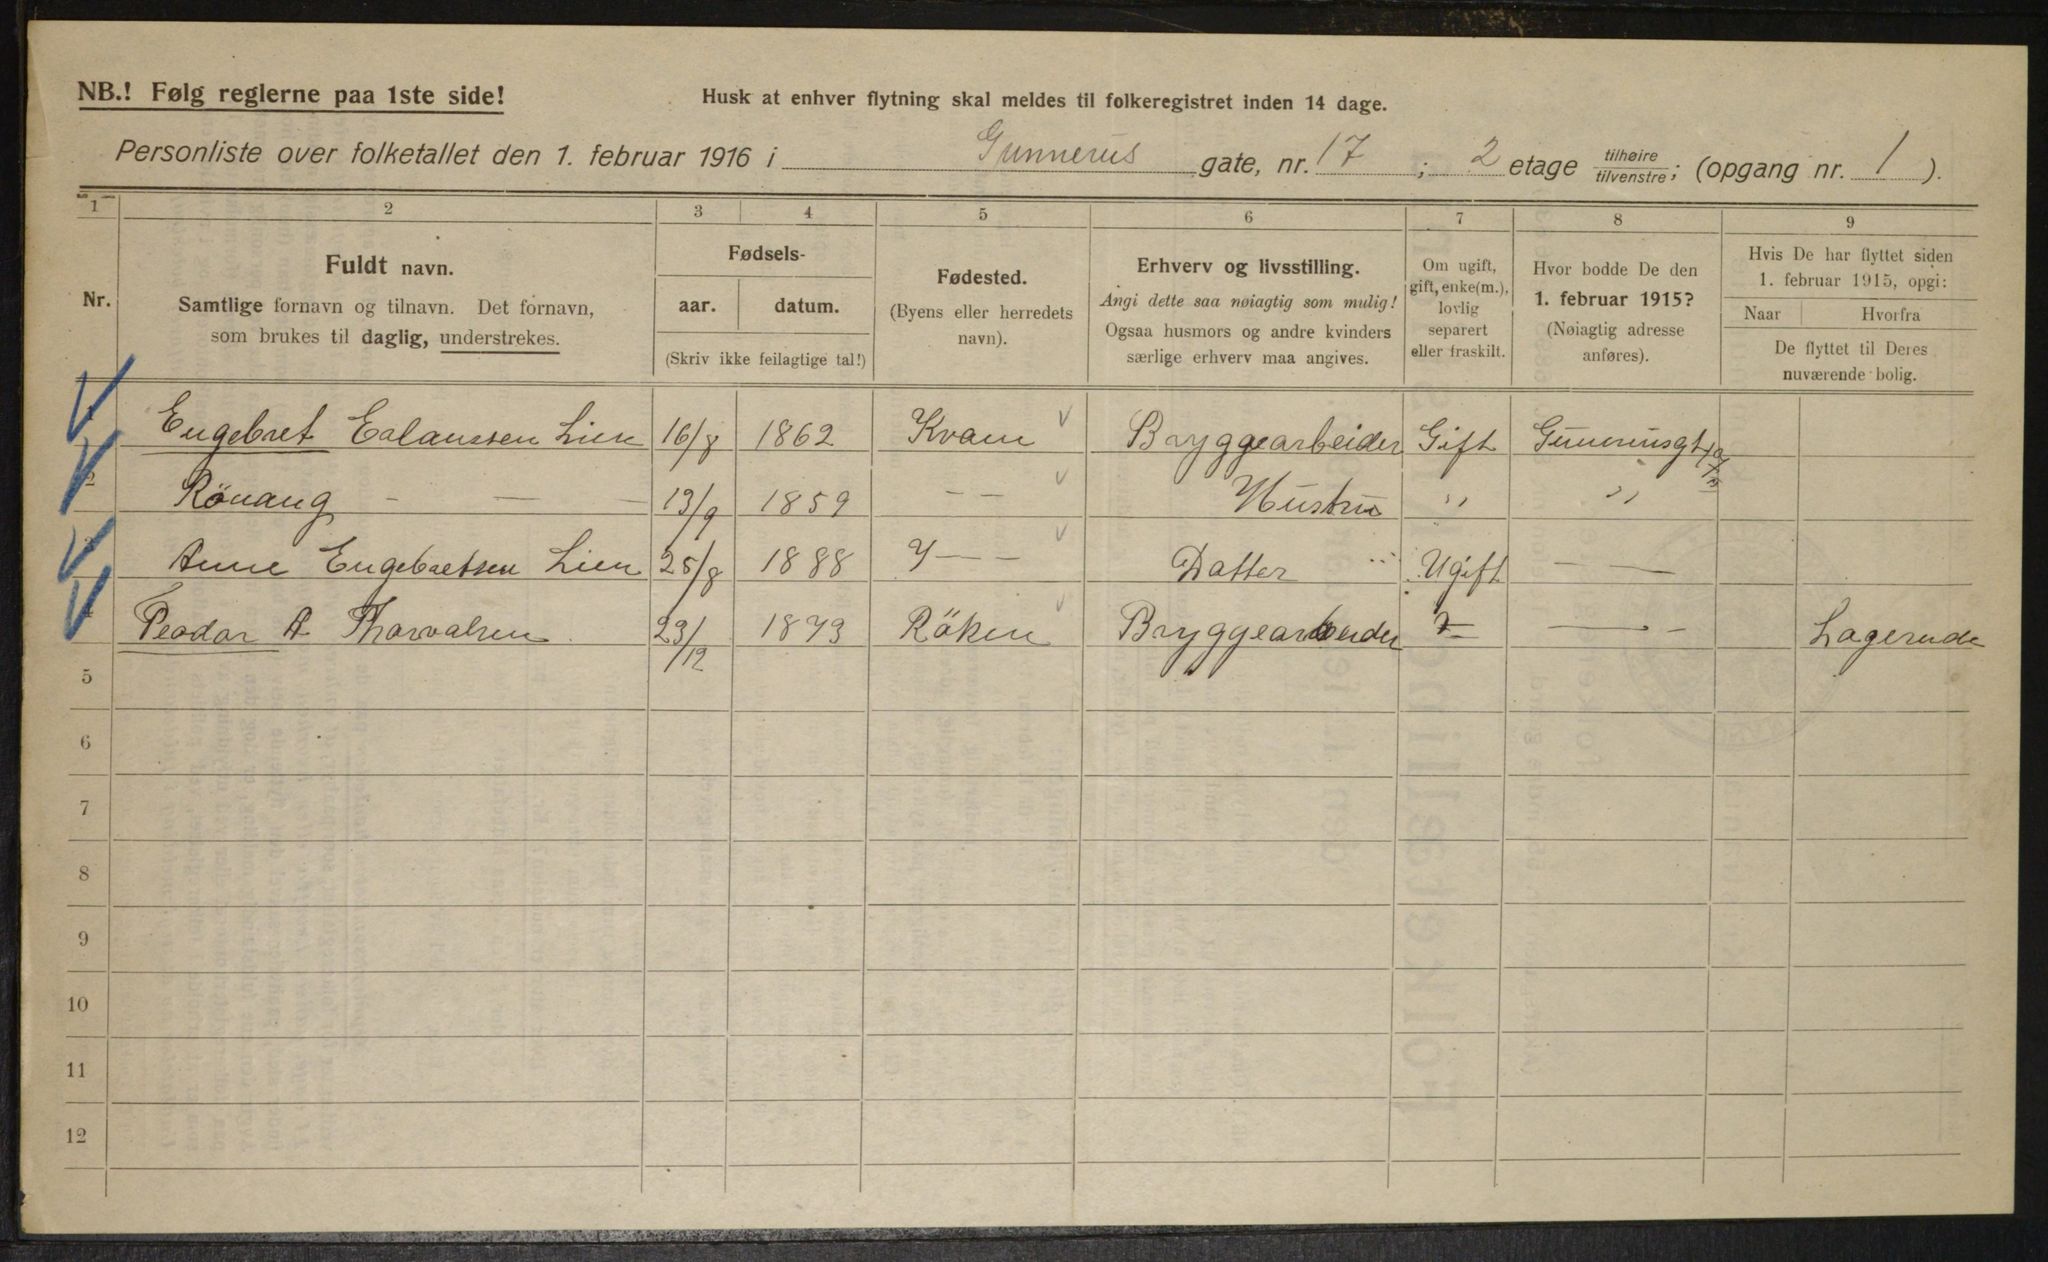 NB.! Følg reglerne paa 1ste side!
Husk at enhver flytning skal meldes til folkeregistret inden 14 dage.
Personliste over folketallet den 1. februar 1916 i Gunnerus gate, nr. 17; 2 etage tilhøire tilvenstre; (opgang nr. 1).
1 2 3 4 5 6 7 8 9
Nr.
Fuldt navn.
Samtlige fornavn og tilnavn. Det fornavn,
som brukes til daglig, understrekes.
Fødsels-
aar. datum.
(Skriv ikke feilagtige tal!)
Fødested.
(Byens eller herredets
navn).
Erhverv og livsstilling.
Angi dette saa nøiagtig som mulig!
Ogsaa husmors og andre kvinders
særlige erhverv maa angives.
Om ugift,
gift, enke(m.),
lovlig
separert
eller fraskilt.
Hvor bodde De den
1. februar 1915?
(Nøiagtig adresse
anføres).
Hvis De har flyttet siden
1. februar 1915, opgi:
Naar Hvorfra
De flyttet til Deres
nuværende bolig.
1 Engebret Erlanssen Lien 16/8 1862 Kvam Bryggearbeider Gift Gunerusgt 17
2 Rönaug - — — 13/9 1859 — — Hustru " "
3 Anne Engebretsen Lien 25/8 1888 — — Datter Ugift — —
4 Teodor A Thorvalsen 23/12 1873 Röken Bryggearbeider — — -
5
6
7
8
9
10
11
12